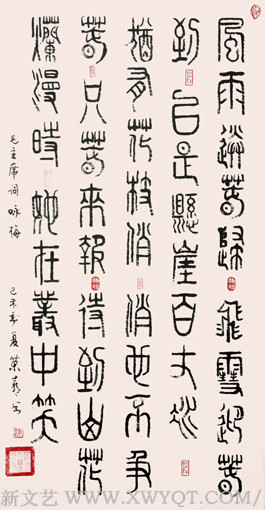 風雨送春歸飛雪迎春
到已是懸崖百丈冰
猶有花枝俏俏也不爭
春只春來報待到山花
爛漫時她在叢中笑
毛主席词 咏梅
己未夏
新文艺 - WWW.XWYQT.COM/